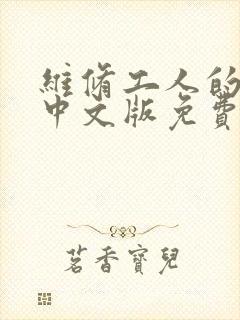 維脩工人的
中文版免費
茗香寶兒